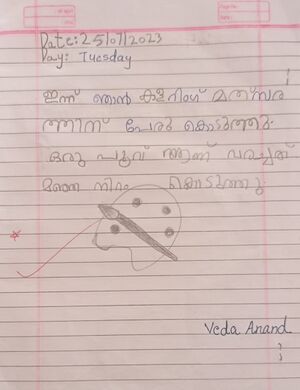 Date: 25/07/2023
Day: Tuesday
ഇന്ന് ഞാൻ കളറിംഗ് മത്സര
ത്തിന് പേരു കൊടുത്തു.
ഒരു പൂവ് ആണ് വരച്ചത്
നിറം കൊടുത്തു.
Veda Anand